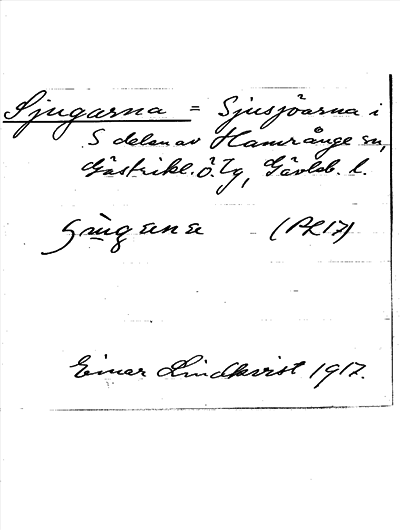 Sjugarna = Sjusjöarna i
S delen av Hamrånge sn,
Gästrikl. ö. Tg, Gävleb. l.
(PL17)
Einar Lindkvist 1917.